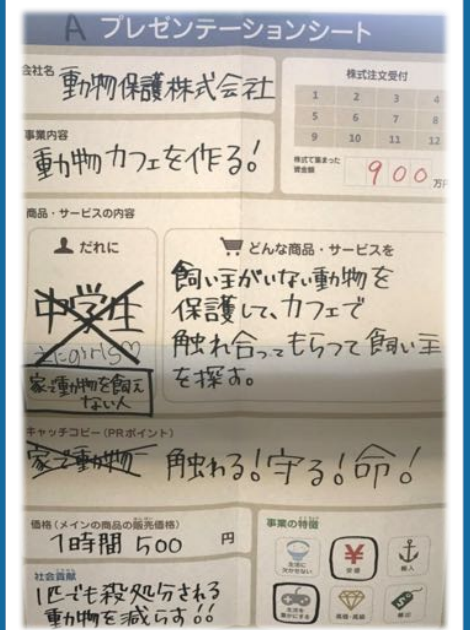 A プレゼンテーションシート
会社名 動物保護株式会社
株式注文受付
1 2 3 4
5 6 7 8
9 10 11 12
株式で集まった
資金額 900 万円
事業内容
動物カフェを作る!
商品・サービスの内容
だれに
中学生
家で動物を飼え
ない人
どんな商品・サービスを
飼い主がいない動物を
保護して、カフェで
触れ合ってもらって飼い主
を探す。
キャッチコピー(PRポイント)
家で動物 触れる!守る!命!
価格(メインの商品の販売価格)
1時間 500 円
社会貢献
1匹でも殺処分される
動物を減らす!!
事業の特徴
生活に
欠かせない
安価
職人
生活を
豊かにする
高価・高級